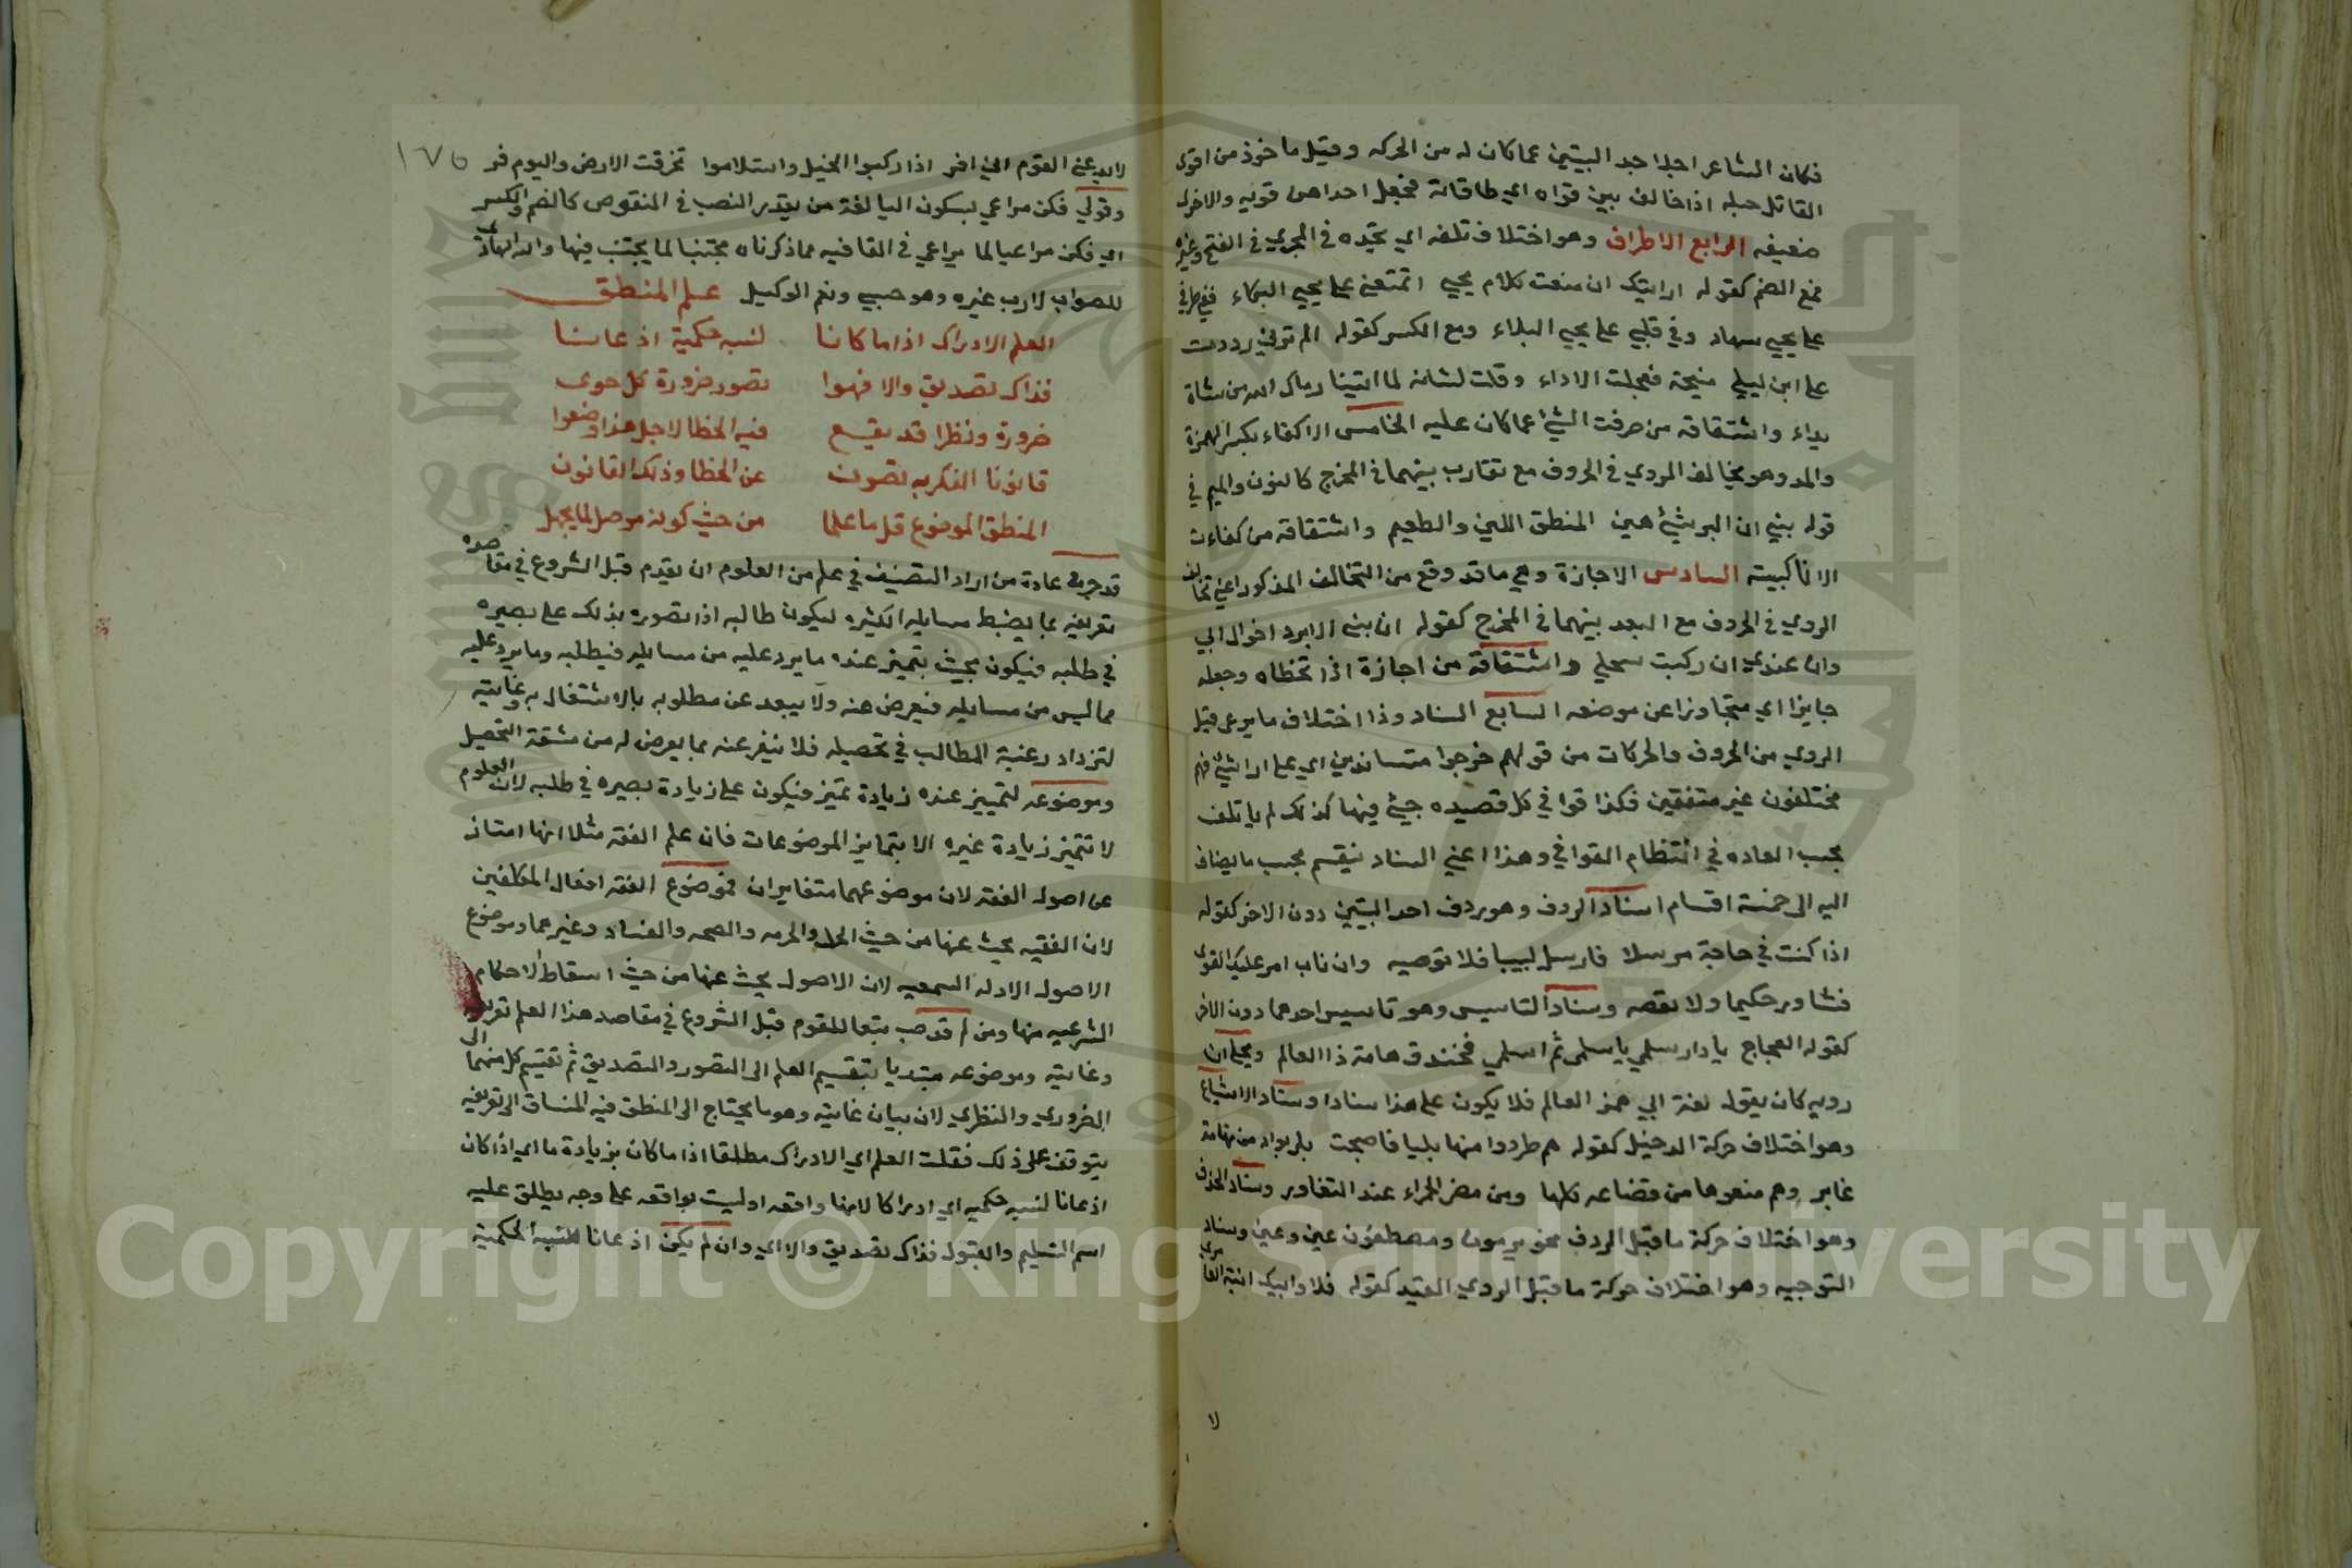 فكان الشاعر اجلا احد البيتين عما كان له من الحركه وقيل ماخوذ من اقوى
القاتل حبله اذا خالف بين قواه اي طاقاته فجعل احداهن قويه والاخرى
ضعيفه الرابع الاطراف وهو اختلاف تلفه اي تقيده في المجري في الفتح وغيره
فمع الضم كقوله ارايتك ان منعت كلام يحيي اتمنعني علي يحيي البكاء ففي طرفي
علي يحيي سهاد وفي قلبي علي يحيي البلاء ومع الكسر كقوله الم ترني رددت
علي ابن ليلي منيحته فعجلت الاداء وقلت لشاته لما اتتينا رماك الله من شاة
بداء واشتقاقه من صرفت الشئ عما كان عليه الخامس الاكفاء بكسر الهمزة
والمد وهو يخالف الروي في الحروف مع تقارب بينهما في المخرج كالنون والميم في
قوله بني ان البر شئ هين المنطق اللين والطعيم واشتقاقه من كفاءت
الاناكبيته السادس الاجازة وهي ما قد وقع من التخالف المذكور اعني تخالف
الروي في الحروف مع البعد بينهما في المخرج كقوله ان بني الابرد اخوال ابي
وان عندي ان ركبت سحلي واشتقاقه من اجازة اذا تخطاه وجعله
جايزا اي متجاوزا عن موضعه السابع السناد وذا اختلاف ما يرعى قبل
الروي من الحروف والحركات من قولهم خرجوا متساندين اي علي ارا شتي فهم
مختلفون غير متفقين فكذا قوافي كل قصيده جيئ فيها كذلك لم ياتلف
بحسب العاده في انتظام القوافي وهذا اعني السناد ينقسم بحسب ما يضاف
اليه الى خمسة اقسام اسناد الردف وهو ردف احد البيتين دون الاخر كقوله
اذا كنت في حاجة مرسلا فارسل لبيبا فلا توصيه وان ناب امر عليك التوى
فشاور حكيما ولا تعصه وسناد التاسيس وهو تاسيس احدهما دون الاخر
كقوله العجاج يا دار سلمي يا سلمى ثم اسلمي فخندق هامة ذا العالم ويحلي ان
روبه كان يقول لغة ابي همز العالم فلا يكون علي هذا سنادا وسناد الاشباع
وهو اختلاف حركة الدخيل كقوله هم طردوا منها بليا فاصبحت بلي بواد من تهامة
غابر وهم منعوها من قضاعه كلها ومن مضر الحمراء عند التغاور وسناد الحذف
وهو اختلاف حركة ما قبل الردف نحو يرمون ومصطفون عين وعين وسناد
التوجيه وهو اختلاف حركة ما قبل الروي المقيد كقوله فلا وابيك ابنة العامري
لا
١٧٥
لا يدعي القوم اني افر اذا ركبوا الخيل واستلاموا تحرقت الارض واليوم قر
وقولي فكن مراعي بسكون اليا لغة من يقدر النصب في المنقوص كالضم والكسر
اي فكن مراعيا لما يراعي في القافيه مما ذكرناه مجتنبا لما يجتنب فيها والله الهادي
للصواب لا رب غيره وهو حسبي ونعم الوكيل علم المنطق
العلم الادراك اذا ما كانا لنسبه حكمية اذعانا
فذاك تصديق والا فهوا تصور ضرورة كل حوى
ضرورة ونظرا قد يقع فيه الخطا لاجل هذا وضعوا
قانونا الفكر به تصون عن الخطا وذلك القانون
المنطق الموضوع قل ما علما من حيث كونه موصل لما يجهل
قد جرت عادة من اراد التصنيف في علم من العلوم ان يقدم قبل الشروع في مقاصده
تعريفه بما يضبط مسايله الكثيره ليكون طالبه اذا تصوره بذلك على بصيره
في طلبه فيكون بحيث يتميز عنده ما يرد عليه من مسايله فيطلبه وما يرد عليه
مما ليس من مسايله فيعرض عنه ولا يبعد عن مطلوبه بالاشتغال به وغايته
لتزداد رغبة المطالب في تحصيله فلا ينفر عنه بما يعرض له من مشقة التحصيل
وموضوعه لتمييز عنده زيادة تميز فيكون علي زيادة بصيره في طلبه لان العلوم
لا تتميز زيادة غيره الا بتمايز الموضوعات فان علم الفقه مثلا انما امتاز
عن اصول الفقه لان موضوعهما متغايران فموضوع الفقه افعال المكلفين
لان الفقيه يبحث عنها من حيث الحل والحرمه والصحه والفساد وغيرهما وموضوع
الاصول الادله السمعيه لان الاصول يبحث عنها من حيث اسقاط الاحكام
الشرعيه منها ومن ثم قدمت تبعا للقوم قبل الشروع في مقاصد هذا العلم تعريفه
وغايته وموضوعه مبتديا بتقسيم العلم الى التصور والتصديق ثم تقسيم كل منهما الى
الضروري والنظري لان بيان غايته وهو ما يحتاج الى المنطق فيه المنساق الى تعريفه
يتوقف على ذلك فقلت العلم اي الادراك مطلقا اذا ما كان بزيادة ما اي اذا كان
اذعانا لنسبه حكميه اي ادراكا لانها واقعه او ليست بواقعه علي وجه يطلق عليه
اسم التسليم والقبول فذاك تصديق والا اي وان لم يكن اذعانا للنسبه الحكمية
Copyright © King Saud University